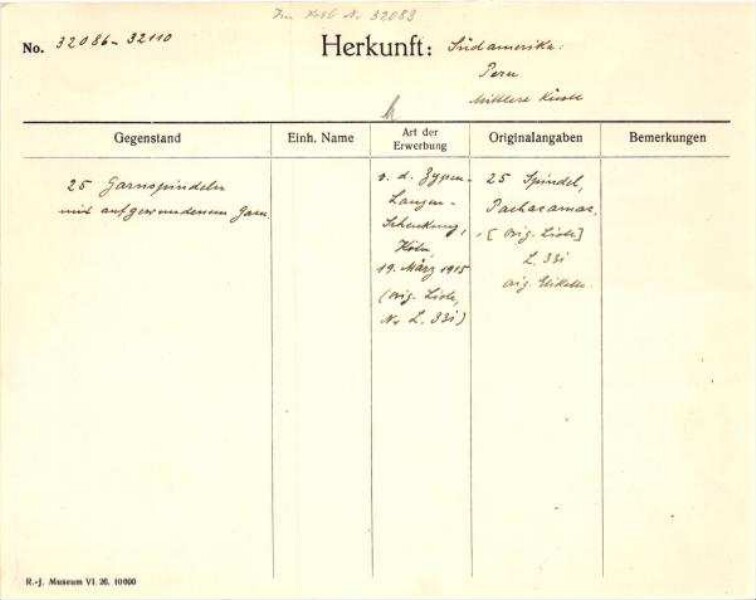 Im Korb No 32083
No. 32086-32110
Herkunft: Südamerika:
Peru
Mittlere Küste
Gegenstand
Einh. Name
Art der Erwerbung
Originalangaben
Bemerkungen
25 Garnspindeln
mit aufgewundenem Garn.
v. d. Zypen-
Langen-
Schenkung,
Köln,
19. März 1915
(orig. Liste,
No L. 33i)
25 Spindel,
Pachacamac,
[orig. Liste]
L. 33i
orig. Etikette.
R.-J. Museum VI. 26. 10000